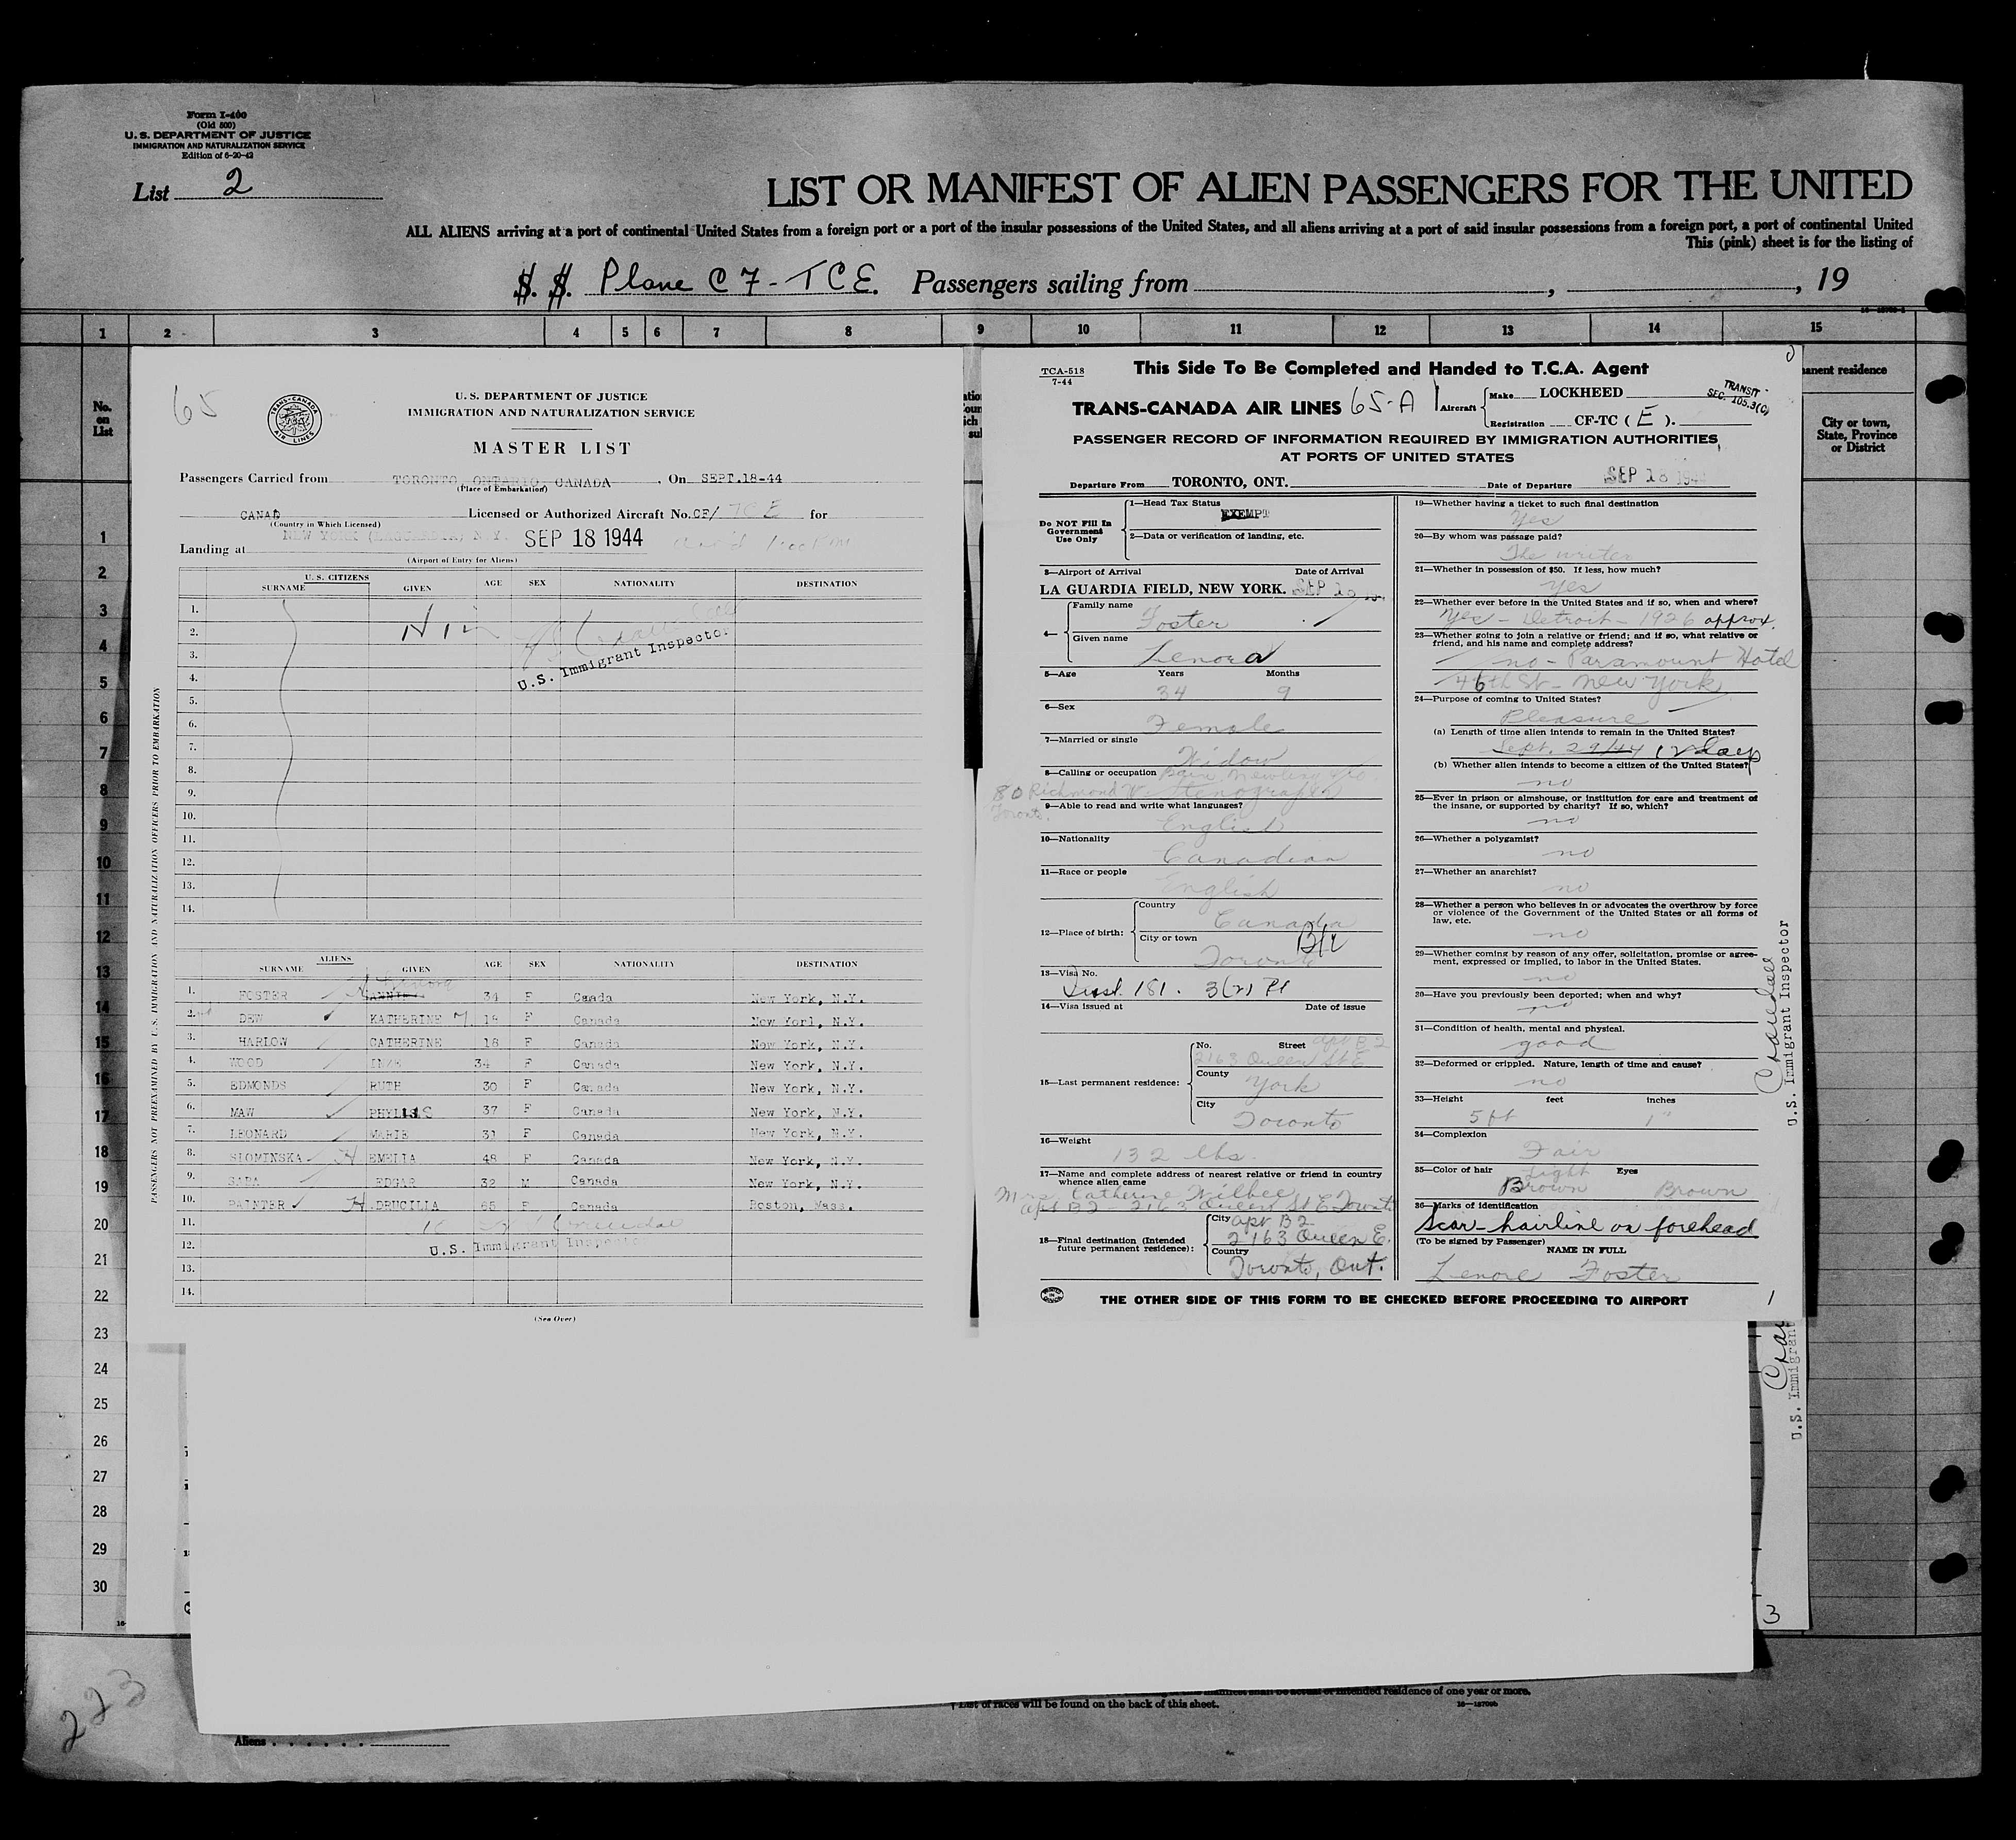 Form I-400
(Old 500)
U. S. DEPARTMENT OF JUSTICE
IMMIGRATION AND NATURALIZATION SERVICE
Edition of 6-20-42
List 2
LIST OR MANIFEST OF ALIEN PASSENGERS FOR THE UNITED
ALL ALIENS arriving at a port of continental United States from a foreign port or a port of the insular possessions of the United States, and all aliens arriving at a port of said insular possessions from a foreign port, a port of continental United
This (pink) sheet is for the listing of
S. S. Plane C7-TCE. Passengers sailing from , , 19
1 2 3 4 5 6 7 8 9 10 11 12 13 14 15
No. on List
anent residence
City or town, State, Province or District
1
2
3
4
5
6
7
8
9
10
11
12
13
14
15
16
17
18
19
20
21
22
23
24
25
26
27
28
29
30
65
TRANS-CANADA AIR LINES
U. S. DEPARTMENT OF JUSTICE
IMMIGRATION AND NATURALIZATION SERVICE
MASTER LIST
Passengers Carried from TORONTO, ONTARIO, CANADA, On SEPT.18-44
(Place of Embarkation)
CANAD Licensed or Authorized Aircraft No. CF/ TCE for
(Country in Which Licensed)
Landing at NEW YORK (LAGUARDIA) N.Y. SEP 18 1944
(Airport of Entry for Aliens)
U. S. CITIZENS
SURNAME GIVEN AGE SEX NATIONALITY DESTINATION
1.
2. Nil
3. U.S. Immigrant Inspector
4.
5.
6.
7.
8.
9.
10.
11.
12.
13.
14.
PASSENGERS NOT PREEXAMINED BY U.S. IMMIGRATION AND NATURALIZATION OFFICERS PRIOR TO EMBARKATION
ALIENS
SURNAME GIVEN AGE SEX NATIONALITY DESTINATION
1. FOSTER ANNIE Lenora 34 F Canada New York, N.Y.
2. DEW KATHERINE 7. 18 F Canada New Yorl, N.Y.
3. HARLOW CATHERINE 18 F Canada New York, N.Y.
4. WOOD INEZ 34 F Canada New York, N.Y.
5. EDMONDS RUTH 30 F Canada New York, N.Y.
6. MAW PHYLLIS 37 F Canada New York, N.Y.
7. LEONARD MARIE 31 F Canada New York, N.Y.
8. SLOMINSKA H EMELIA 48 F Canada New York, N.Y.
9. SAPA EDGAR 32 M Canada New York, N.Y.
10. PAINTER H DRUCILLA 65 F Canada Boston, Mass.
11. 10
12. U.S. Immigrant Inspector
13.
14.
(See Over)
TCA-518
7-44
This Side To Be Completed and Handed to T.C.A. Agent
TRANS-CANADA AIR LINES 65-A Aircraft Make LOCKHEED
Registration CF-TC ( E ).
TRANSIT - SEC. 105.3(C)
PASSENGER RECORD OF INFORMATION REQUIRED BY IMMIGRATION AUTHORITIES
AT PORTS OF UNITED STATES
Departure From TORONTO, ONT. Date of Departure SEP 18 194
Do NOT Fill In Government Use Only
1—Head Tax Status
EXEMPT
2—Data or verification of landing, etc.
3—Airport of Arrival Date of Arrival
LA GUARDIA FIELD, NEW YORK. SEP 18
4— Family name
Foster
Given name
Lenora
5—Age Years Months
34 9
6—Sex
Female
7—Married or single
Widow
8—Calling or occupation
80 Richmond W. Stenographer
Toronto.
9—Able to read and write what languages?
English
10—Nationality
Canadian
11—Race or people
English
12—Place of birth: Country
Canada
City or town
Toronto
13—Visa No.
181. 3(2) Pl
14—Visa issued at Date of issue
15—Last permanent residence: No. Street Apt B2
2163 Queen St E
County
York
City
Toronto
16—Weight
132 lbs.
17—Name and complete address of nearest relative or friend in country whence alien came
Mrs. Catherine Wilbee
Apt B2 - 2163 Queen St E Toronto
18—Final destination (Intended future permanent residence): City Apt B2
2163 Queen E.
Country
Toronto, Ont.
19—Whether having a ticket to such final destination
Yes
20—By whom was passage paid?
The writer
21—Whether in possession of $50. If less, how much?
Yes
22—Whether ever before in the United States and if so, when and where?
Yes - Detroit - 1926 approx.
23—Whether going to join a relative or friend; and if so, what relative or friend, and his name and complete address?
no - Paramount Hotel
46th St - New York
24—Purpose of coming to United States?
Pleasure
(a) Length of time alien intends to remain in the United States?
Sept. 29/44 12 days
(b) Whether alien intends to become a citizen of the United States?
no
25—Ever in prison or almshouse, or institution for care and treatment of the insane, or supported by charity? If so, which?
no
26—Whether a polygamist?
no
27—Whether an anarchist?
no
28—Whether a person who believes in or advocates the overthrow by force or violence of the Government of the United States or all forms of law, etc.
no
29—Whether coming by reason of any offer, solicitation, promise or agreement, expressed or implied, to labor in the United States.
no
30—Have you previously been deported; when and why?
no
31—Condition of health, mental and physical.
good
32—Deformed or crippled. Nature, length of time and cause?
no
33—Height feet inches
5 ft 1"
34—Complexion
Fair
35—Color of hair Eyes
Light Brown Brown
36—Marks of identification
Scar - hairline on forehead
(To be signed by Passenger) NAME IN FULL
Lenore Foster
THE OTHER SIDE OF THIS FORM TO BE CHECKED BEFORE PROCEEDING TO AIRPORT
1
U.S. Immigrant Inspector
U.S. Immigrant
3
List of races will be found on the back of this sheet.
intended residence of one year or more.
Aliens
223